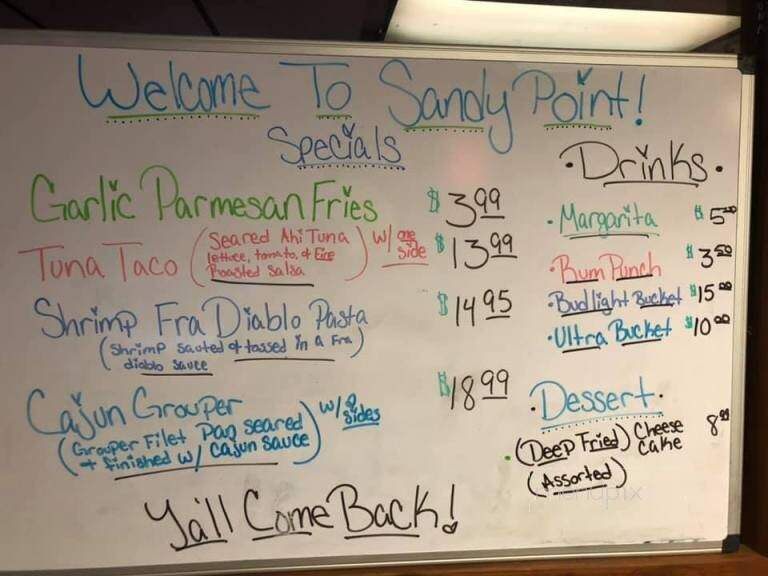 Welcome To Sandy Point!
Specials
Garlic Parmesan Fries $3.99
Tuna Taco (Seared Ahi Tuna lettuce, tomato, + Fire Roasted Salsa) w/ one side $13.99
Shrimp Fra Diablo Pasta $14.95
(Shrimp sauted + tossed in a Fra
diablo sauce)
Cajun Grouper $18.99
(Grouper Filet Pan seared
+ finished w/ Cajun sauce) w/ 2 sides
• Drinks •
• Margarita $5.00
• Rum Punch $3.50
• Budlight Bucket $15.00
• Ultra Bucket $10.00
• Dessert •
• (Deep Fried) Cheese Cake
(Assorted)
Ya'll Come Back!